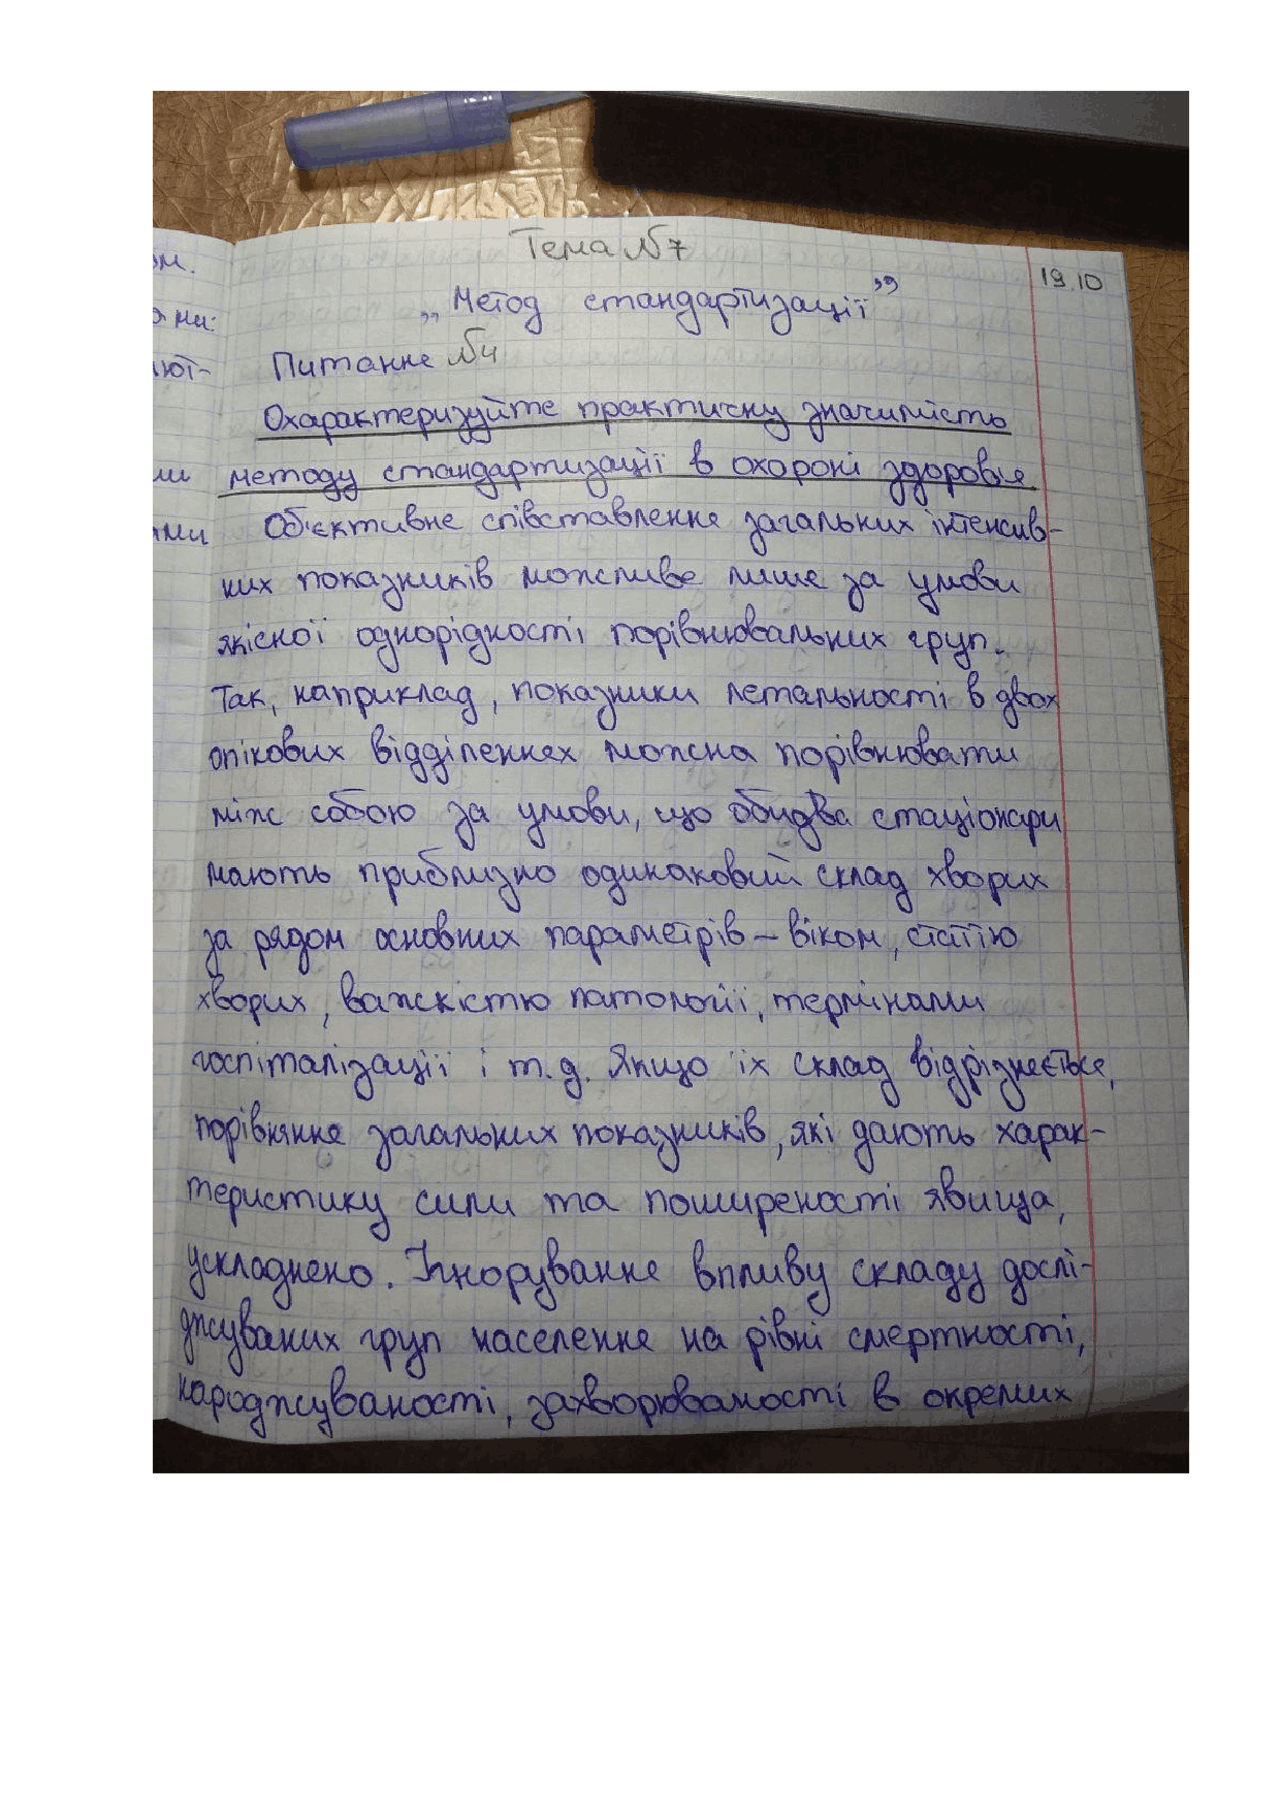 Тема №7
19.10
„Метод стандартизації”
Питання №4
Охарактеризуйте практичну значимість
методу стандартизації в охороні здоров'я
Об'єктивне співставлення загальних інтенсив-
них показників можливе лише за умови
якісної однорідності порівнювальних груп.
Так, наприклад, показники летальності в двох
опікових відділеннях можна порівнювати
між собою за умови, що обидва стаціонари
мають приблизно одинаковий склад хворих
за рядом основних параметрів – віком, статтю
хворих, важкістю патології, термінами
госпіталізації і т.д. Якщо їх склад відрізняється,
порівняння загальних показників, які дають харак-
теристику сили та поширеності явища,
ускладнено. Ігнорування впливу складу дослі-
джуваних груп населення на рівні смертності,
народжуваності, захворюваності в окремих